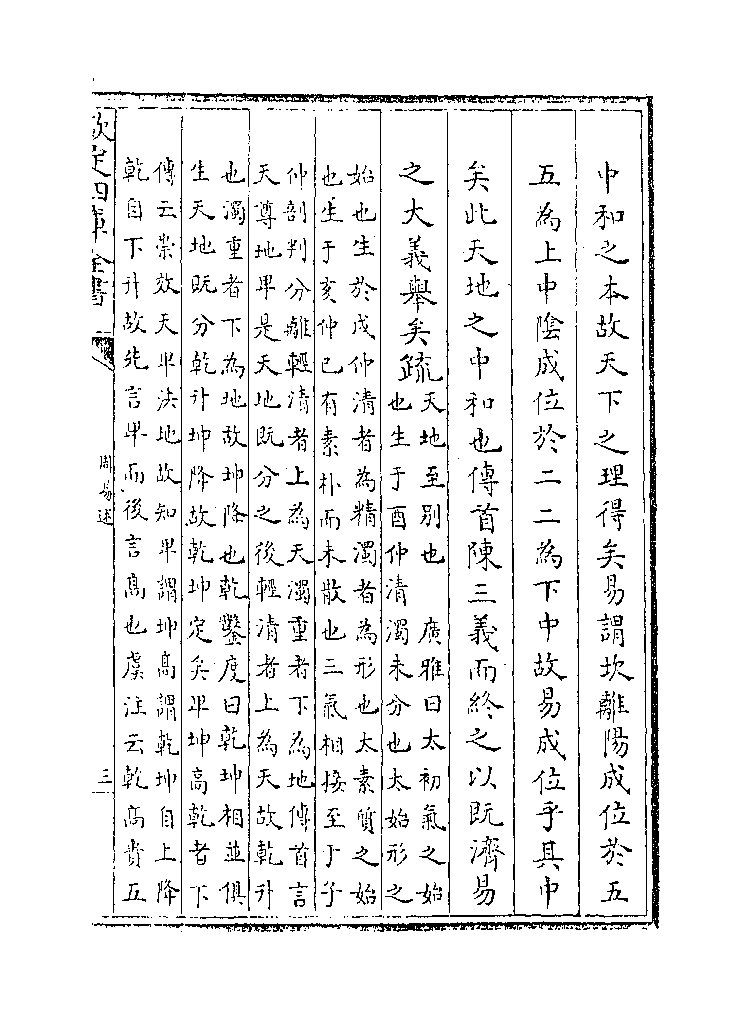 中和之本故天下之理得矣易謂坎離陽成位於五
五為上中陰成位於二二為下中故易成位乎其中
矣此天地之中和也傳首陳三義而終之以既濟易
之大義舉矣疏
天地至別也　廣雅曰太初氣之始
也生于酉仲清濁未分也太始形之
始也生於戌仲清者為精濁者為形也太素質之始
也生于亥仲已有素朴而未散也三氣相接至于子
仲剖判分離輕清者上為天濁重者下為地傳首言
天尊地卑是天地既分之後輕清者上為天故乾升
也濁重者下為地故坤降也乾鑿度曰乾坤相並俱
生天地既分乾升坤降故乾坤定矣卑坤高乾者下
傳云崇效天卑法地故知卑謂坤高謂乾坤自上降
乾自下升故先言卑而後言高也虞注云乾高貴五
欽定四庫全書
周易述
三